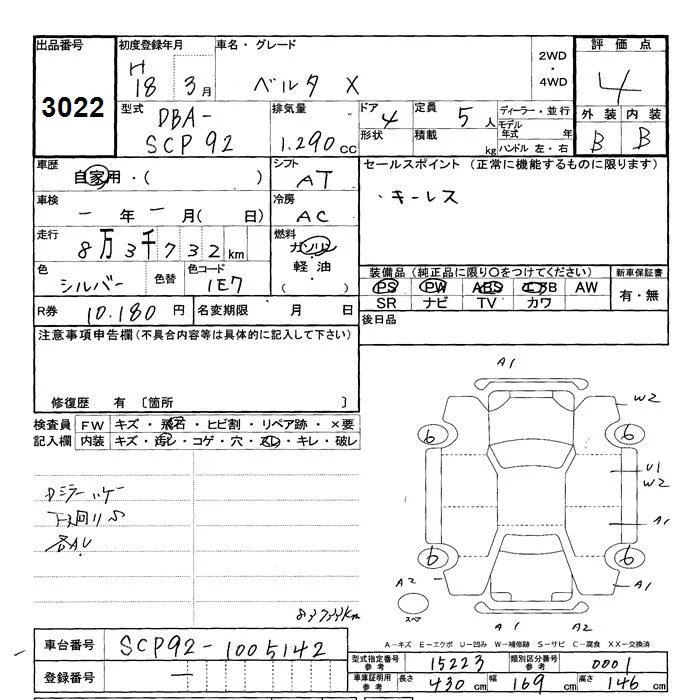 出品番号 初度登録年月 車名・グレード 評価点
3022
H
18 3月 ベルタ X 2WD・4WD 4
型式 DBA-
SCP92
排気量 1.290cc
ドア 4 定員 5人 ディーラー・並行
形状 積載 kg モデル年式 年
ハンドル 左・右
外装 内装
B B
車歴 自家用・( )
シフト AT
セールスポイント (正常に機能するものに限ります)
・キーレス
車検 一年 一月( 日)
冷房 AC
走行 8万3千732km
燃料 ガソリン
軽油・
( )
色 シルバー 色替 色コード 1E7
装備品(純正品に限り○をつけてください) 新車保証書
PS PW ABS エアB AW 有・無
SR ナビ TV カワ
R券 10.180円 名変期限 月 日
後日品
注意事項申告欄(不具合内容等は具体的に記入して下さい)
修復歴 有 〔箇所 〕
検査員 FW キズ・飛石・ヒビ割・リペア跡・×要
記入欄 内装 キズ・汚レ・コゲ・穴・スレ・キレ・破レ
下廻りS
各AU
83733km
A1
W2
6 6
U1
W2
A1
6 6
A2 A1
スペア
A1 A2
A-キズ E-エクボ U-凹み W-補修跡 S-サビ C-腐食 XX-交換済
車台番号 SCP92-1005142
登録番号 —
型式指定番号 参考 15223 類別区分番号 参考 0001
車庫証明用 参考 長さ 430cm 幅 169cm 高さ 146cm